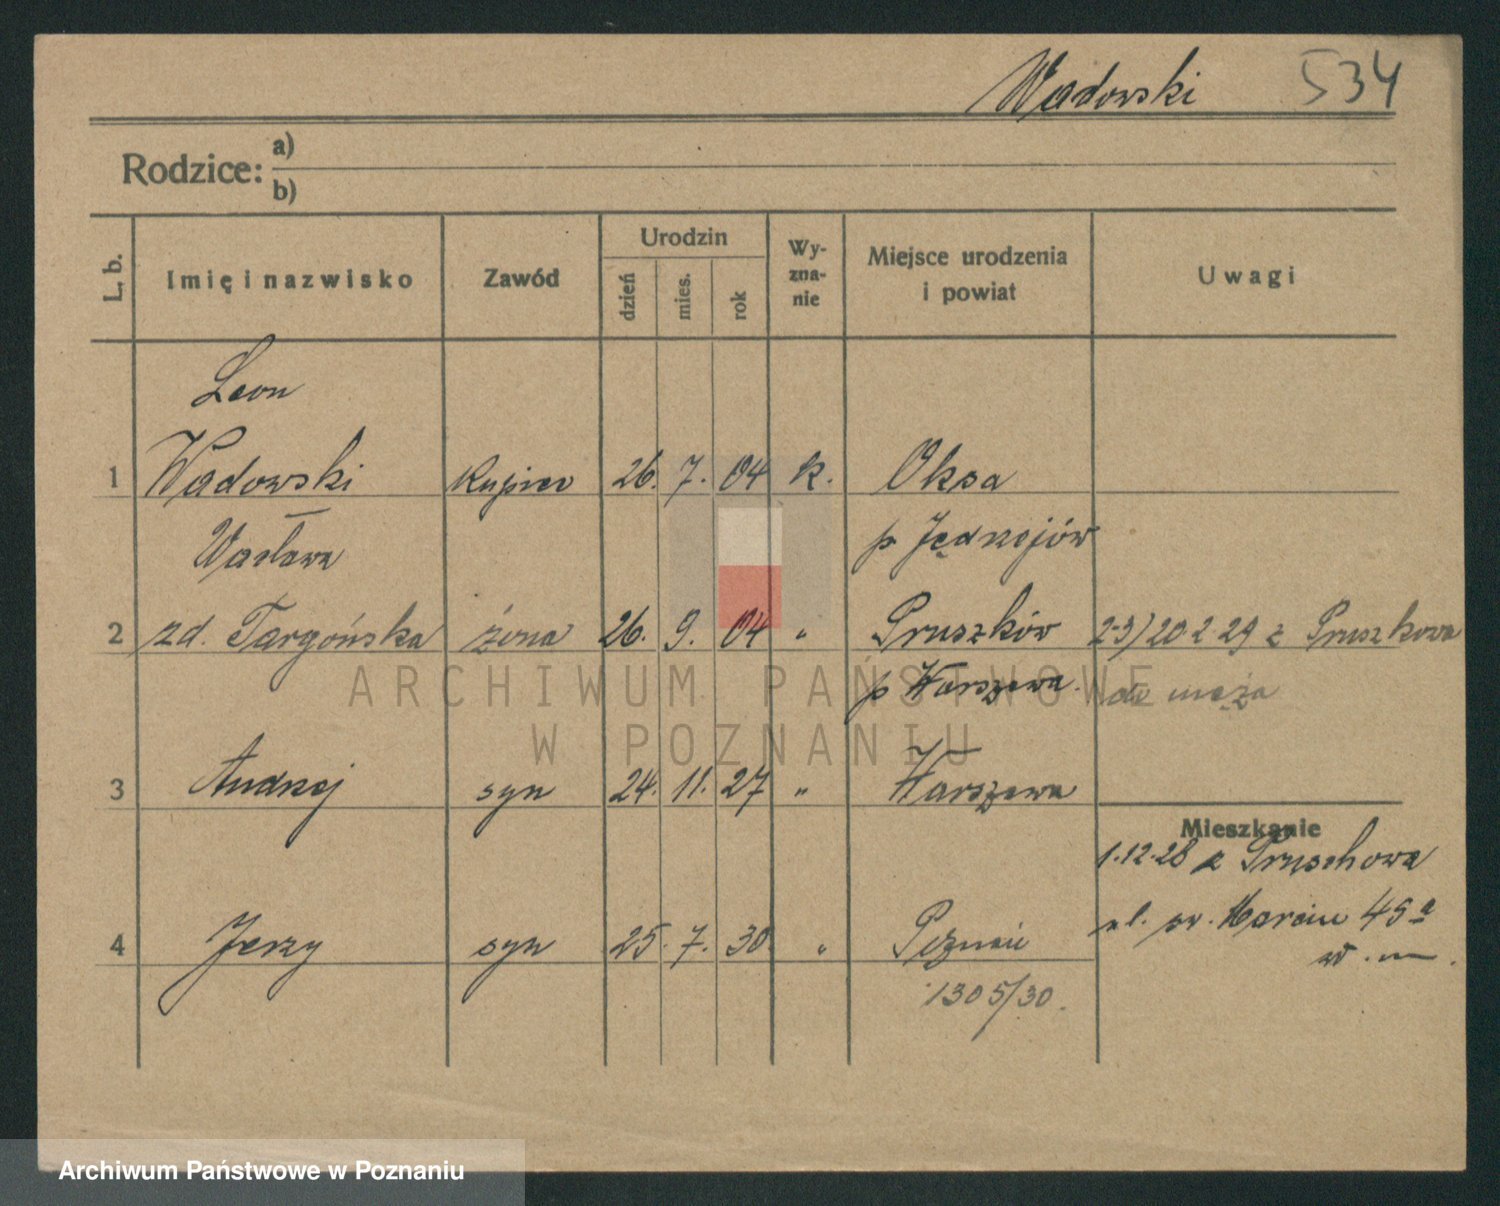 Wadowski 534
Rodzice: a)
b)
L. b. Imię i nazwisko Zawód Urodzin dzień mies. rok Wy-zna-nie Miejsce urodzenia i powiat Uwagi
Leon
1 Wadowski kupiec 26. 7. 04 k. Oksa
Wacława p Jędrzejów
2 zd. Targońska żona 26. 9. 04 " Pruszków 23) 20 2 29 z Pruszkowa
p Warszawa. do męża
3 Andrzej syn 24. 11. 27 " Warszawa
Mieszkanie
1.12.28 z Pruschowa
ul. św. Marcin 45a
4 Jerzy syn 25. 7. 30 " Poznań
1305/30.
ARCHIWUM PAŃSTWOWE
W POZNANIU
Archiwum Państwowe w Poznaniu